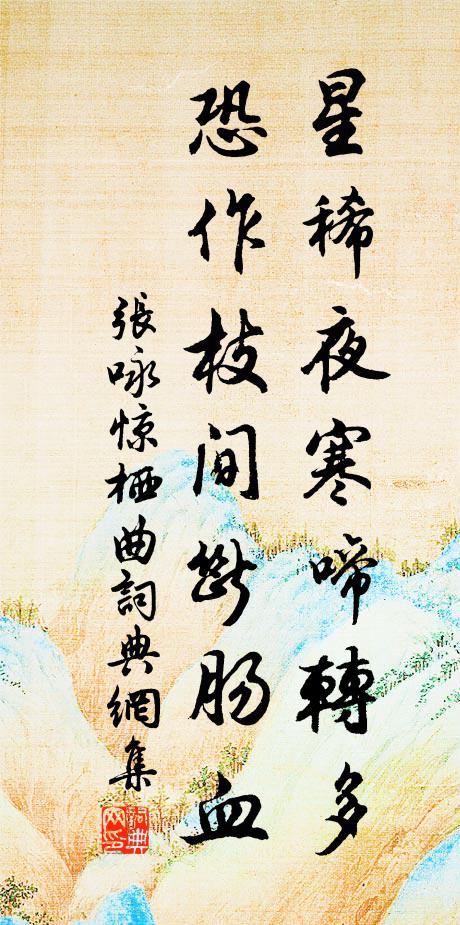 星稀夜寒啼轉多
恐作枝間斷腸血
張咏惊栖曲詞典網集
詞典網印